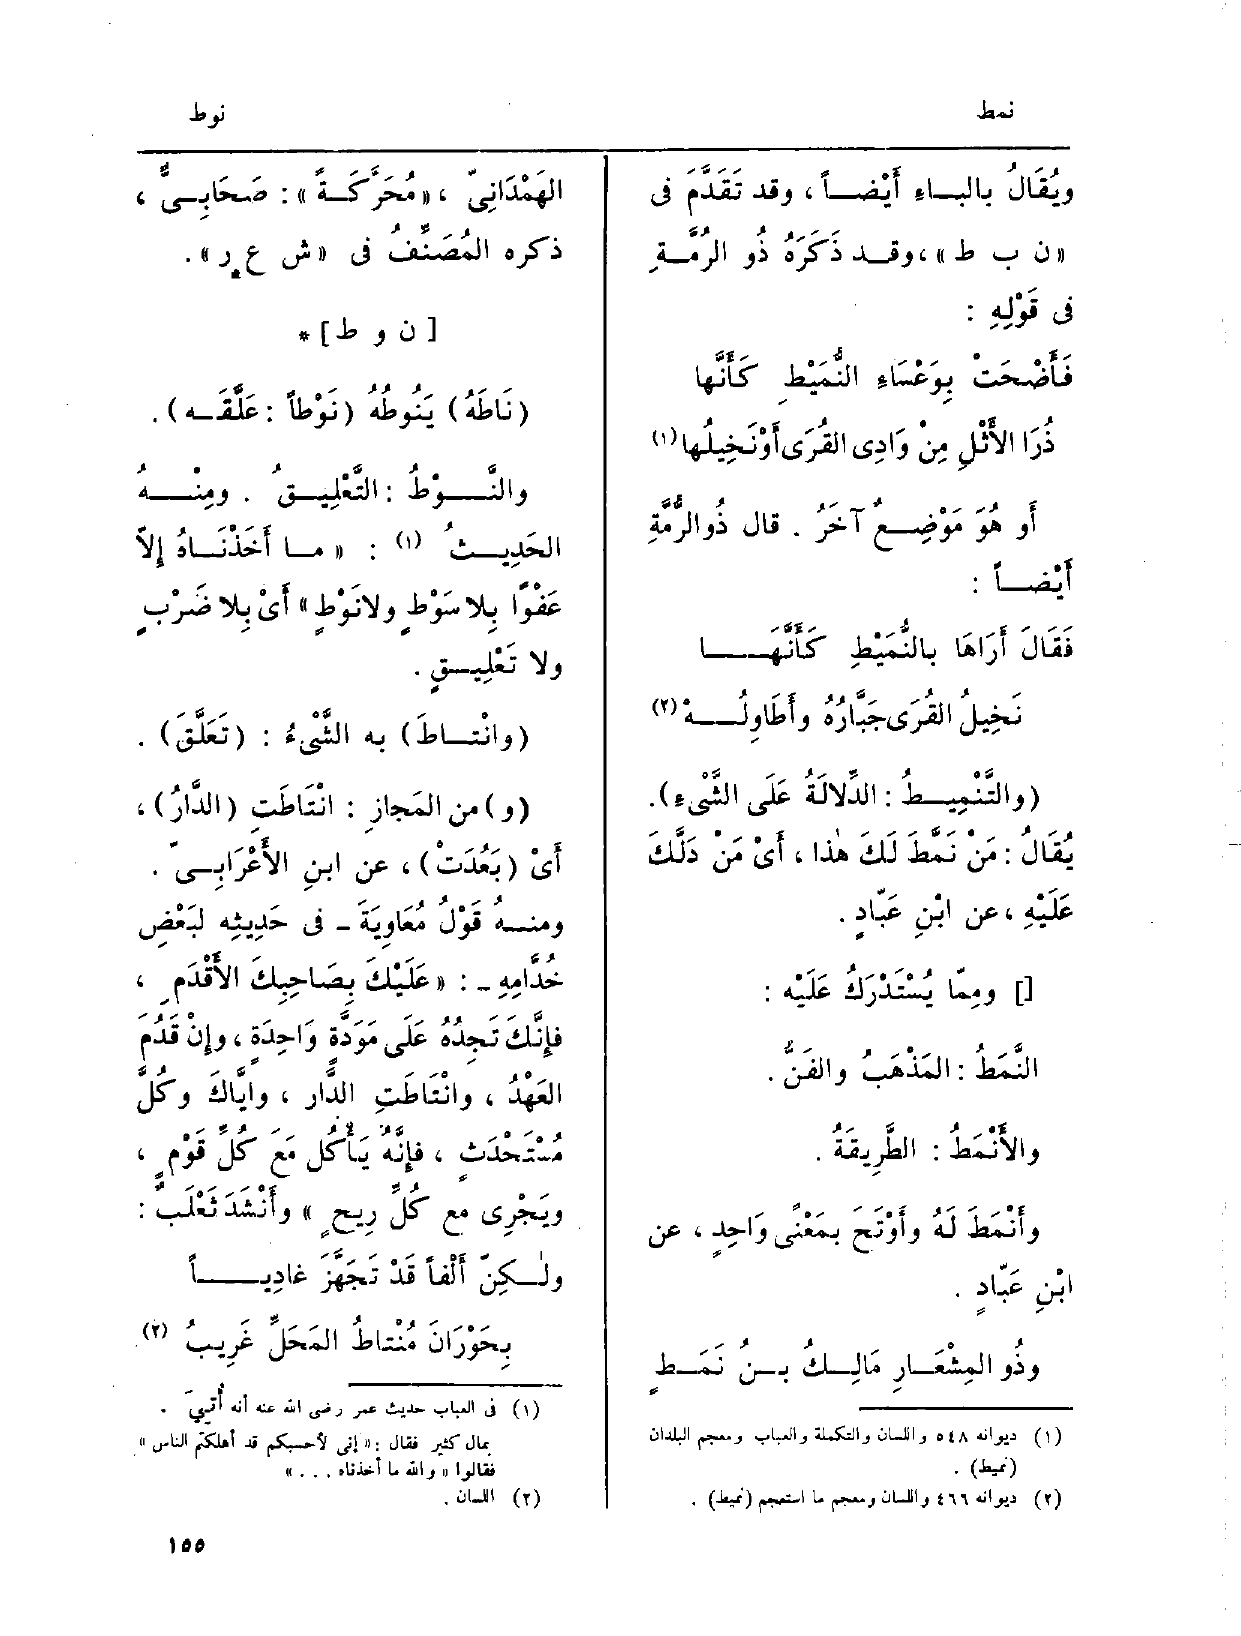 نمط
نوط
ويُقَالُ بالبـاءِ أَيْضـاً ، وقد تَقَدَّمَ فى
«ن ب ط» ، وقـد ذَكَرَهُ ذُو الرُّمَّـةِ
فى قَوْلِهِ :
فَأَضْحَتْ بِوَعْسَاءِ النُّمَيْطِ كَأَنَّها
ذُرَا الأَثْلِ مِنْ وَادِى القُرَى أَوْ نَخِيلُها (١)
أو هُوَ مَوْضِـعٌ آخَرُ . قال ذُو الرُّمَّةِ
أَيْضـاً :
فَقَالَ أَرَاهَا بالنُّمَيْطِ كَأَنَّهَـــا
نَخِيلُ القُرَى جَبَّارُهُ وأَطَاوِلُـــهْ (٢)
(والتَّنْمِيـطُ : الدِّلالَةُ عَلَى الشَّىْءِ).
يُقَالُ : مَنْ نَمَّطَ لَكَ هٰذا ، أَىْ مَنْ دَلَّكَ
عَلَيْهِ ، عن ابْنِ عَبّادٍ .
[] ومِمّا يُسْتَدْرَكُ عَلَيْهِ :
النَّمَطُ : المَذْهَبُ والفَنُّ .
والأَنْمَطُ : الطَّرِيقَةُ .
وأَنْمَطَ لَهُ وأَوْتَحَ بمَعْنًى وَاحِدٍ ، عن
ابْنِ عَبّادٍ .
وذُو المِشْعَـارِ مَالِـكُ بـنُ نَمَـطٍ
(١) ديوانه ٥٤٨ واللسان والتكملة والعباب ومعجم البلدان
(نميط) .
(٢) ديوانه ٤٦٦ واللسان ومعجم ما استعجم (نميط) .
الهَمْدَانِىّ ، «مُحَرَّكَـةً» : صَحَابِـىٌّ ،
ذكره المُصَنِّفُ فى «ش ع ر» .
[ ن و ط ] *
(نَاطَهُ) يَنُوطُهُ (نَوْطاً : عَلَّقَـه) .
والنَّـــوْطُ : التَّعْلِيـقُ . ومِنْـــهُ
الحَدِيـثُ (١) : « مـا أَخَذْنَـاهُ إِلاَّ
عَفْوًا بِلا سَوْطٍ ولا نَوْطٍ » أَىْ بِلا ضَرْبٍ
ولا تَعْلِيـقٍ .
(وانْتـاطَ) به الشَّىْءُ : (تَعَلَّقَ) .
(و) من المَجازِ : انْتَاطَتِ (الدَّارُ) ،
أَىْ (بَعُدَتْ) ، عن ابنِ الأَعْرَابِـىّ .
ومنـهُ قَوْلُ مُعَاوِيَةَ - فى حَدِيثِه لبَعْضِ
خُدَّامِهِ - : « عَلَيْكَ بِصَاحِبِكَ الأَقْدَمِ ،
فإِنَّكَ تَجِدُهُ عَلَى مَوَدَّةٍ وَاحِدَةٍ ، وإِنْ قَدُمَ
العَهْدُ ، وانْتَاطَتِ الدَّار ، وإِيَّاكَ وكُلَّ
مُسْتَحْدَثٍ ، فإِنَّهُ يَأْكُل مَعَ كُلِّ قَوْمٍ ،
ويَجْرِى مع كُلِّ رِيحٍ » وأَنْشَدَ ثَعْلَبٌ :
ولٰـكِنّ أَلْفاً قَدْ تَجَهَّزَ غادِيـــاً
بِحَوْرَانَ مُنْتاطُ المَحَلِّ غَرِيبُ (٢)
(١) فى العباب حديث عمر رضى الله عنه أنه أُتِىَ .
بمال كثير فقال : « إنى لأحسبكم قد أهلكتم الناس »
فقالوا « والله ما أخذناه . . . »
(٢) اللسان .
١٥٥